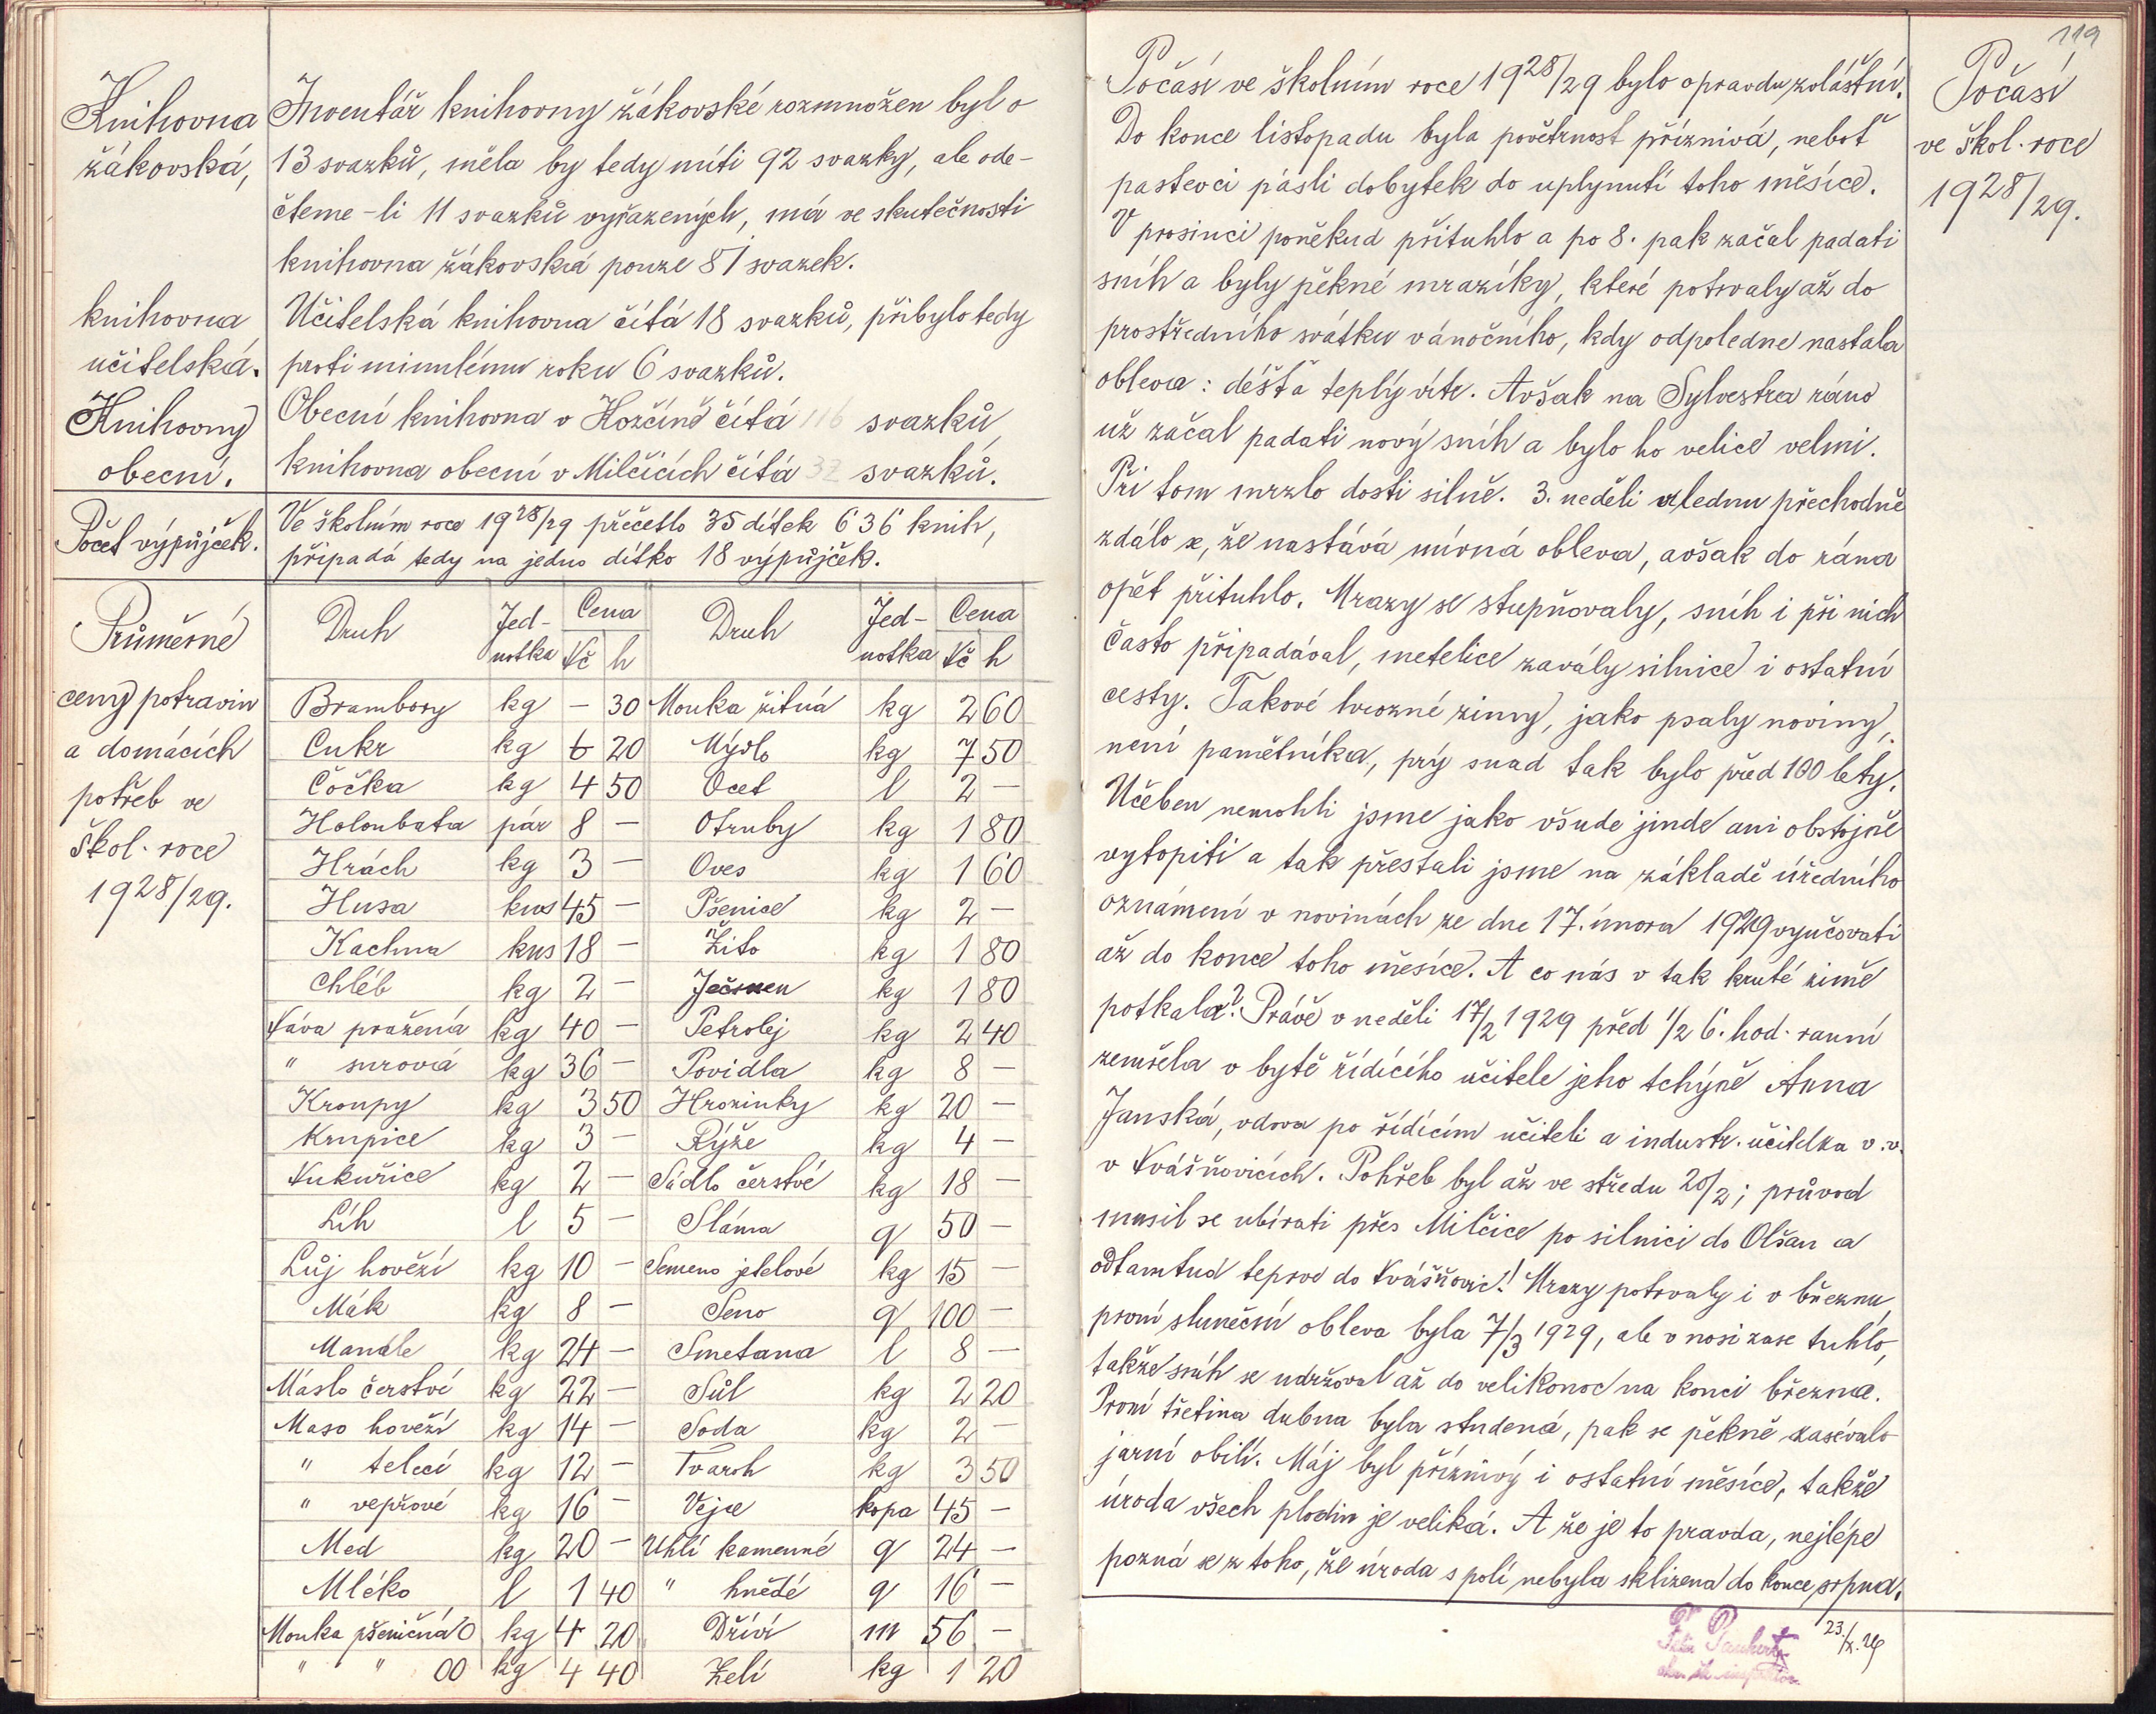 Knihovna
žákovská,
Inventář knihovny žákovské rozmnožen byl o
13 svazků, měla by tedy míti 92 svazky, ale ode-
čteme-li 11 svazků vyřazených, má ve skutečnosti
knihovna žákovská pouze 81 svazek.
knihovna
učitelská.
Učitelská knihovna čítá 18 svazků, přibylo tedy
proti minulému roku 6 svazků.
Knihovny
obecní.
Obecní knihovna v Hožčíně čítá 116 svazků,
knihovna obecní v Milčicích čítá 32 svazků.
Počet výpůjček.
Ve školním roce 1928/29 přečetlo 35 dítek 636 knih,
připadá tedy na jedno dítko 18 výpůjček.
Průměrné
ceny potravin
a domácích
potřeb ve
škol. roce
1928/29.
Druh Jed-notka Cena Kč h Druh Jed-notka Cena Kč h
Brambory kg – 30 Mouka žitná kg 2 60
Cukr kg 6 20 Mýdlo kg 7 50
Čočka kg 4 50 Ocet l 2 –
Holoubata pár 8 – Otruby kg 1 80
Hrách kg 3 – Oves kg 1 60
Husa kus 45 – Pšenice kg 2 –
Kachna kus 18 – Žito kg 1 80
Chléb kg 2 – Ječmen kg 1 80
Káva pražená kg 40 – Petrolej kg 2 40
" surová kg 36 – Povidla kg 8 –
Kroupy kg 3 50 Hrozinky kg 20 –
Krupice kg 3 – Rýže kg 4 –
Kukuřice kg 2 – Sádlo čerstvé kg 18 –
Líh l 5 – Sláma q 50 –
Lůj hovězí kg 10 – Semeno jetelové kg 15 –
Mák kg 8 – Seno q 100 –
Mandle kg 24 – Smetana l 8 –
Máslo čerstvé kg 22 – Sůl kg 2 20
Maso hovězí kg 14 – Soda kg 2 –
" telecí kg 12 – Tvaroh kg 3 50
" vepřové kg 16 – Vejce kopa 45 –
Med kg 20 – Uhlí kamenné q 24 –
Mléko l 1 40 " hnědé q 16 –
Mouka pšeničná 0 kg 4 20 Dříví m 56 –
" " 00 kg 4 40 Zelí kg 1 20
119
Počasí
ve škol. roce
1928/29.
Počasí ve školním roce 1928/29 bylo opravdu zvláštní.
Do konce listopadu byla povětrnost příznivá, neboť
pastevci pásli dobytek do uplynutí toho měsíce.
V prosinci poněkud přituhlo a po 8. pak začal padati
sníh a byly pěkné mrazíky, které potrvaly až do
prostředního svátku vánočního, kdy odpoledne nastala
obleva: déšť a teplý vítr. Avšak na Sylvestra ráno
už začal padati nový sníh a bylo ho velice velmi.
Při tom mrzlo dosti silně. 3. neděli v lednu přechodně
zdálo se, že nastává mírná obleva, avšak do rána
opět přituhlo. Mrazy se stupňovaly, sníh i při nich
často připadával, metelice zavály silnice i ostatní
cesty. Takové hrozné zimy, jako psaly noviny,
není pamětníka, prý snad tak bylo před 100 lety.
Učeben nemohli jsme jako všude jinde ani obstojně
vytopiti a tak přestali jsme na základě úředního
oznámení v novinách ze dne 17. února 1929 vyučovati
až do konce toho měsíce. A co nás v tak kruté zimě
potkalo? Právě v neděli 17/2 1929 před 1/2 6. hod. ranní
zemřela v bytě řídícího učitele jeho tchýně Anna
Janská, vdova po řídícím učiteli a industr. učitelka v. v.
v Kvášňovicích. Pohřeb byl až ve středu 20/2; průvod
musil se ubírati přes Milčice po silnici do Olšan a
odtamtud teprve do Kvášňovic! Mrazy potrvaly i v březnu,
první sluneční obleva byla 7/3 1929, ale v nosi zase tuhlo,
takže sníh se udržoval až do velikonoc na konci března.
První třetina dubna byla studená, pak se pěkně zasévalo
jarní obilí. Máj byl příznivý i ostatní měsíce, takže
úroda všech plodin je veliká. A že je to pravda, nejlépe
pozná se z toho, že úroda s polí nebyla sklizena do konce srpna.
23./X. 29